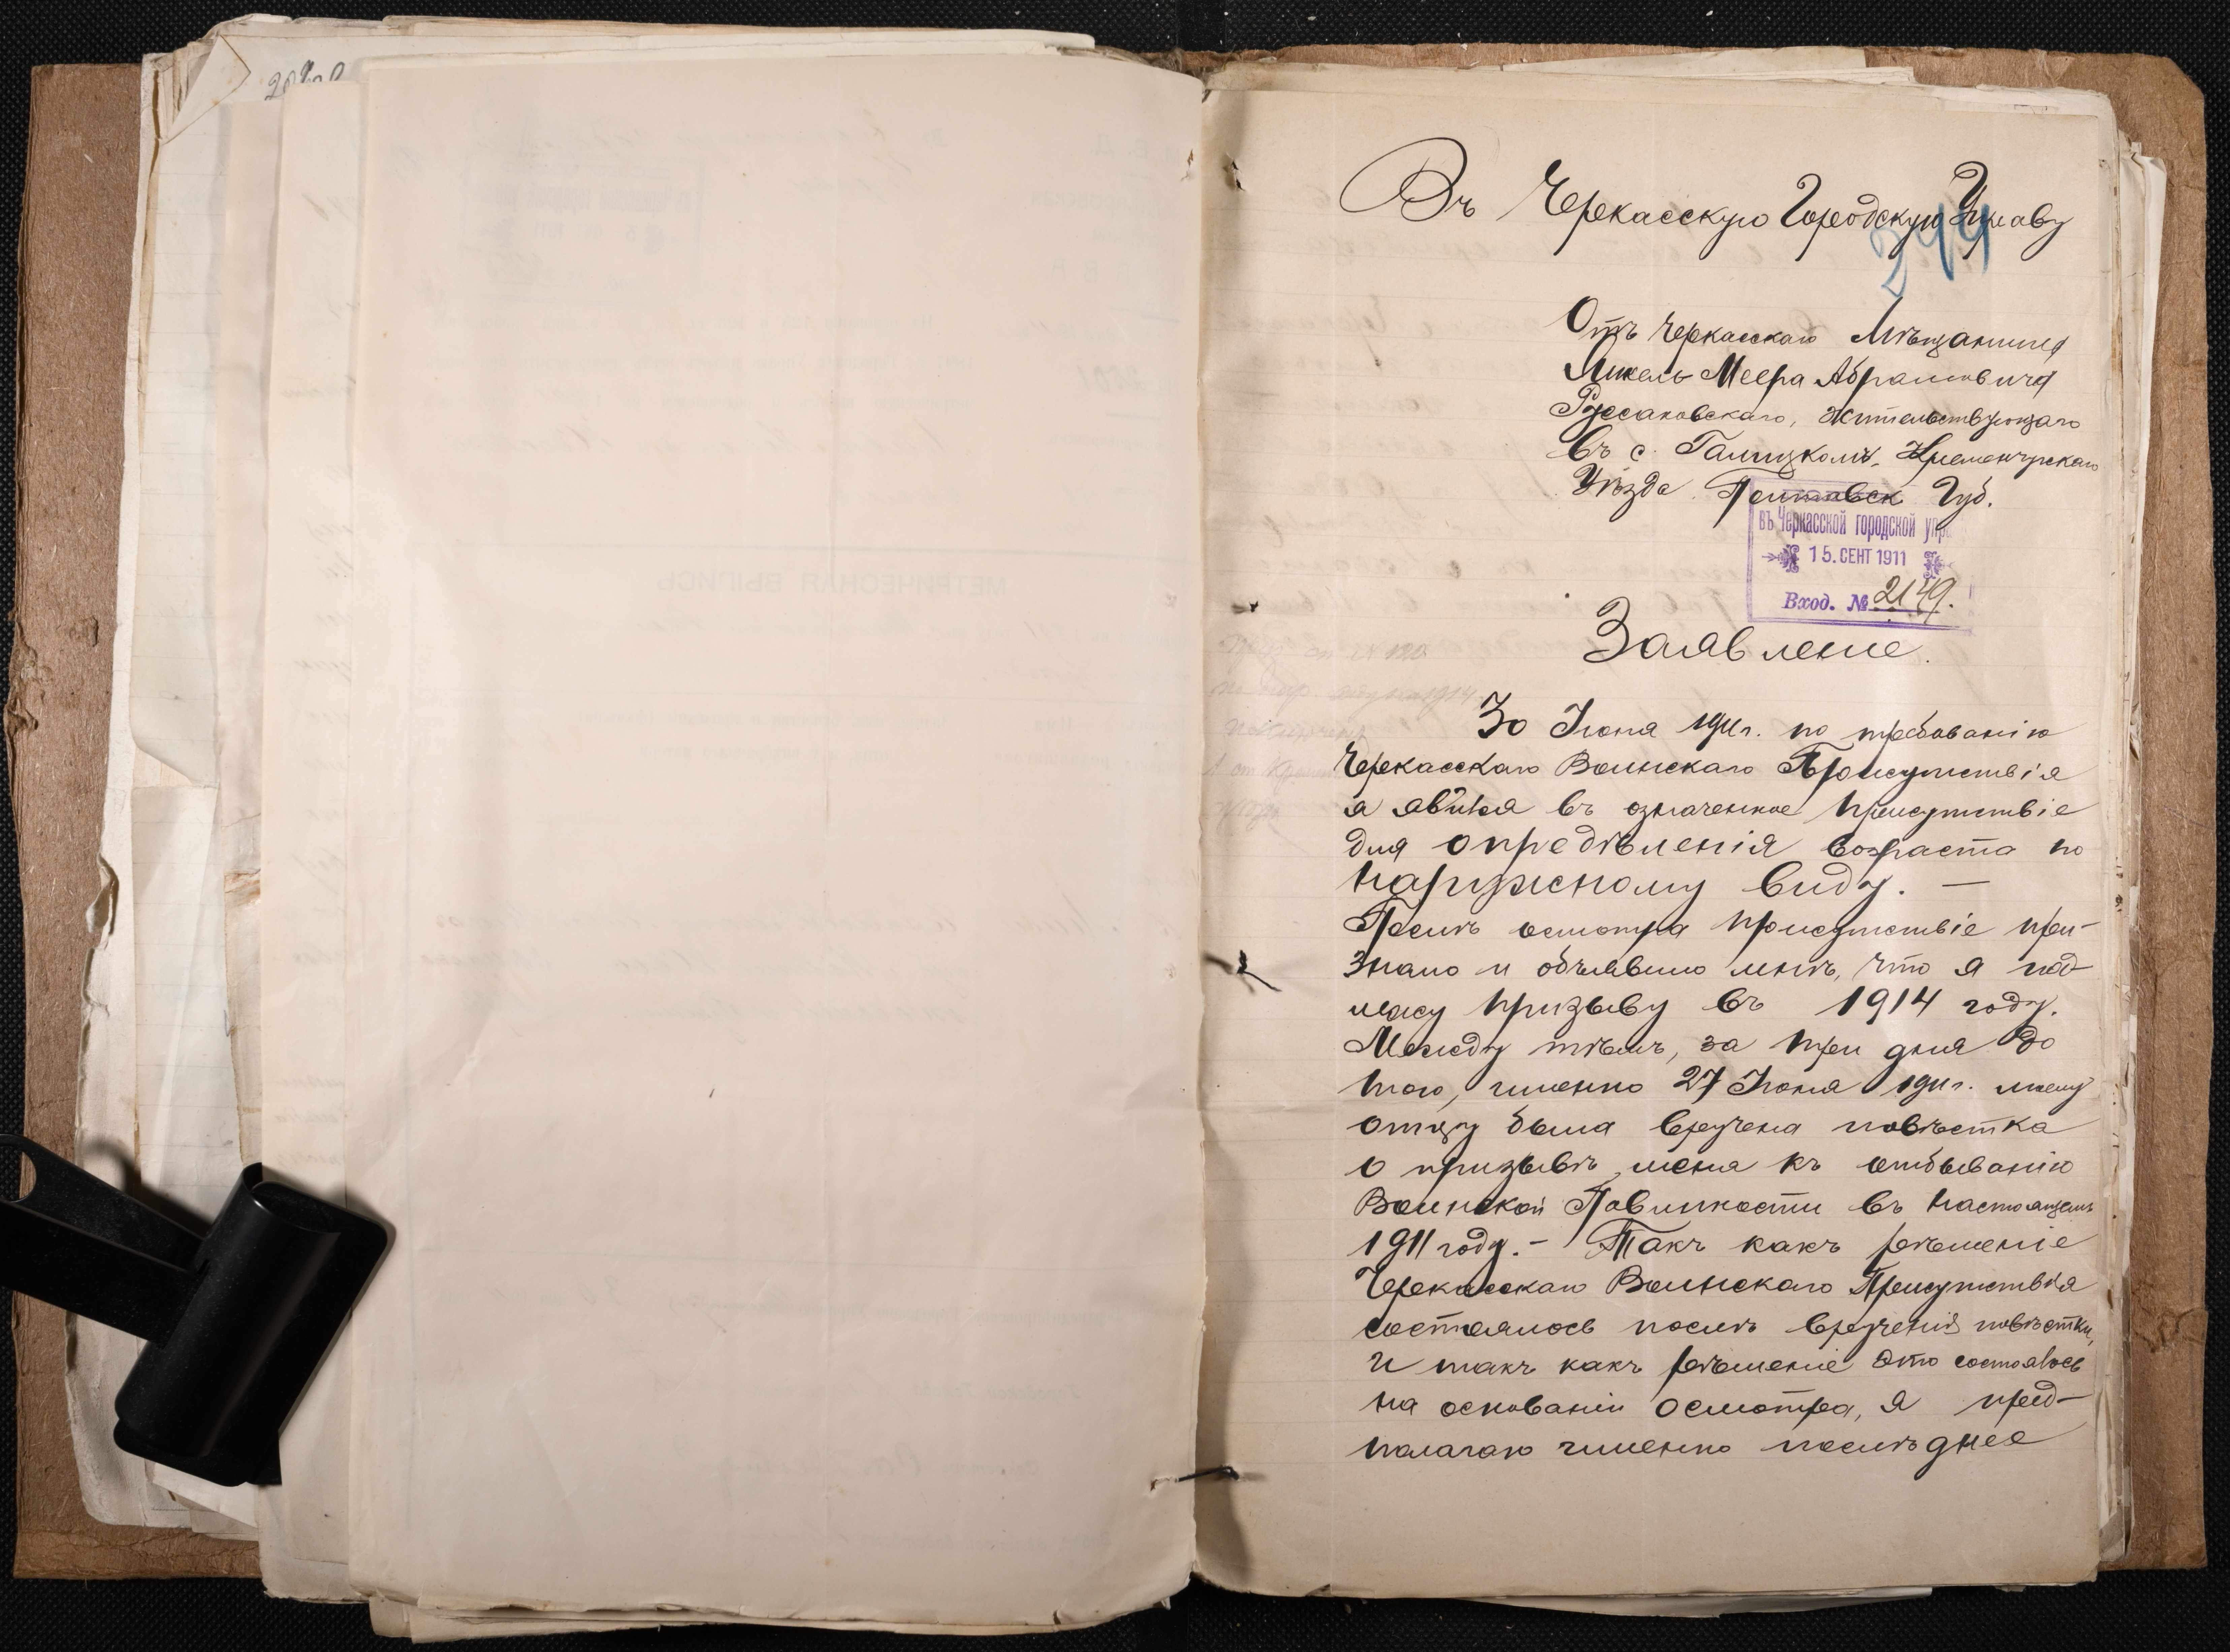 Въ Черкасскую Городскую Управу
244
Отъ Черкасскаго Мѣщанина
Янкель-Меера Абрамовича
Руссаковскаго, жительствующаго
въ с. Галицкомъ, Кременчугскаго
Уѣзда Полтавск Губ.
въ Черкасской городской упр
15. СЕНТ 1911
Вход. № 2149.
Заявленіе.
30 Іюня 1911 г. по требованію
Черкасскаго Воинскаго Присутствія
я явился въ означенное присутствіе
для опредѣленія возраста по
наружному виду. —
Послѣ осмотра присутствіе при-
знало и объявило мнѣ, что я под-
лежу призыву въ 1914 году.
Между тѣмъ, за три дня до
того, именно 27 Іюня 1911 г. моему
отцу была вручена повѣстка
о призывѣ меня къ отбыванію
Воинской Повинности въ настоящемъ
1911 году. — Такъ какъ рѣшеніе
Черкасскаго Воинскаго Присутствія
состоялось послѣ врученія повѣстки,
и такъ какъ рѣшеніе это состоялось
на основаніи осмотра, я пред-
полагаю именно послѣднее
МЕТРИЧЕСКАЯ ВЫПИСЬ